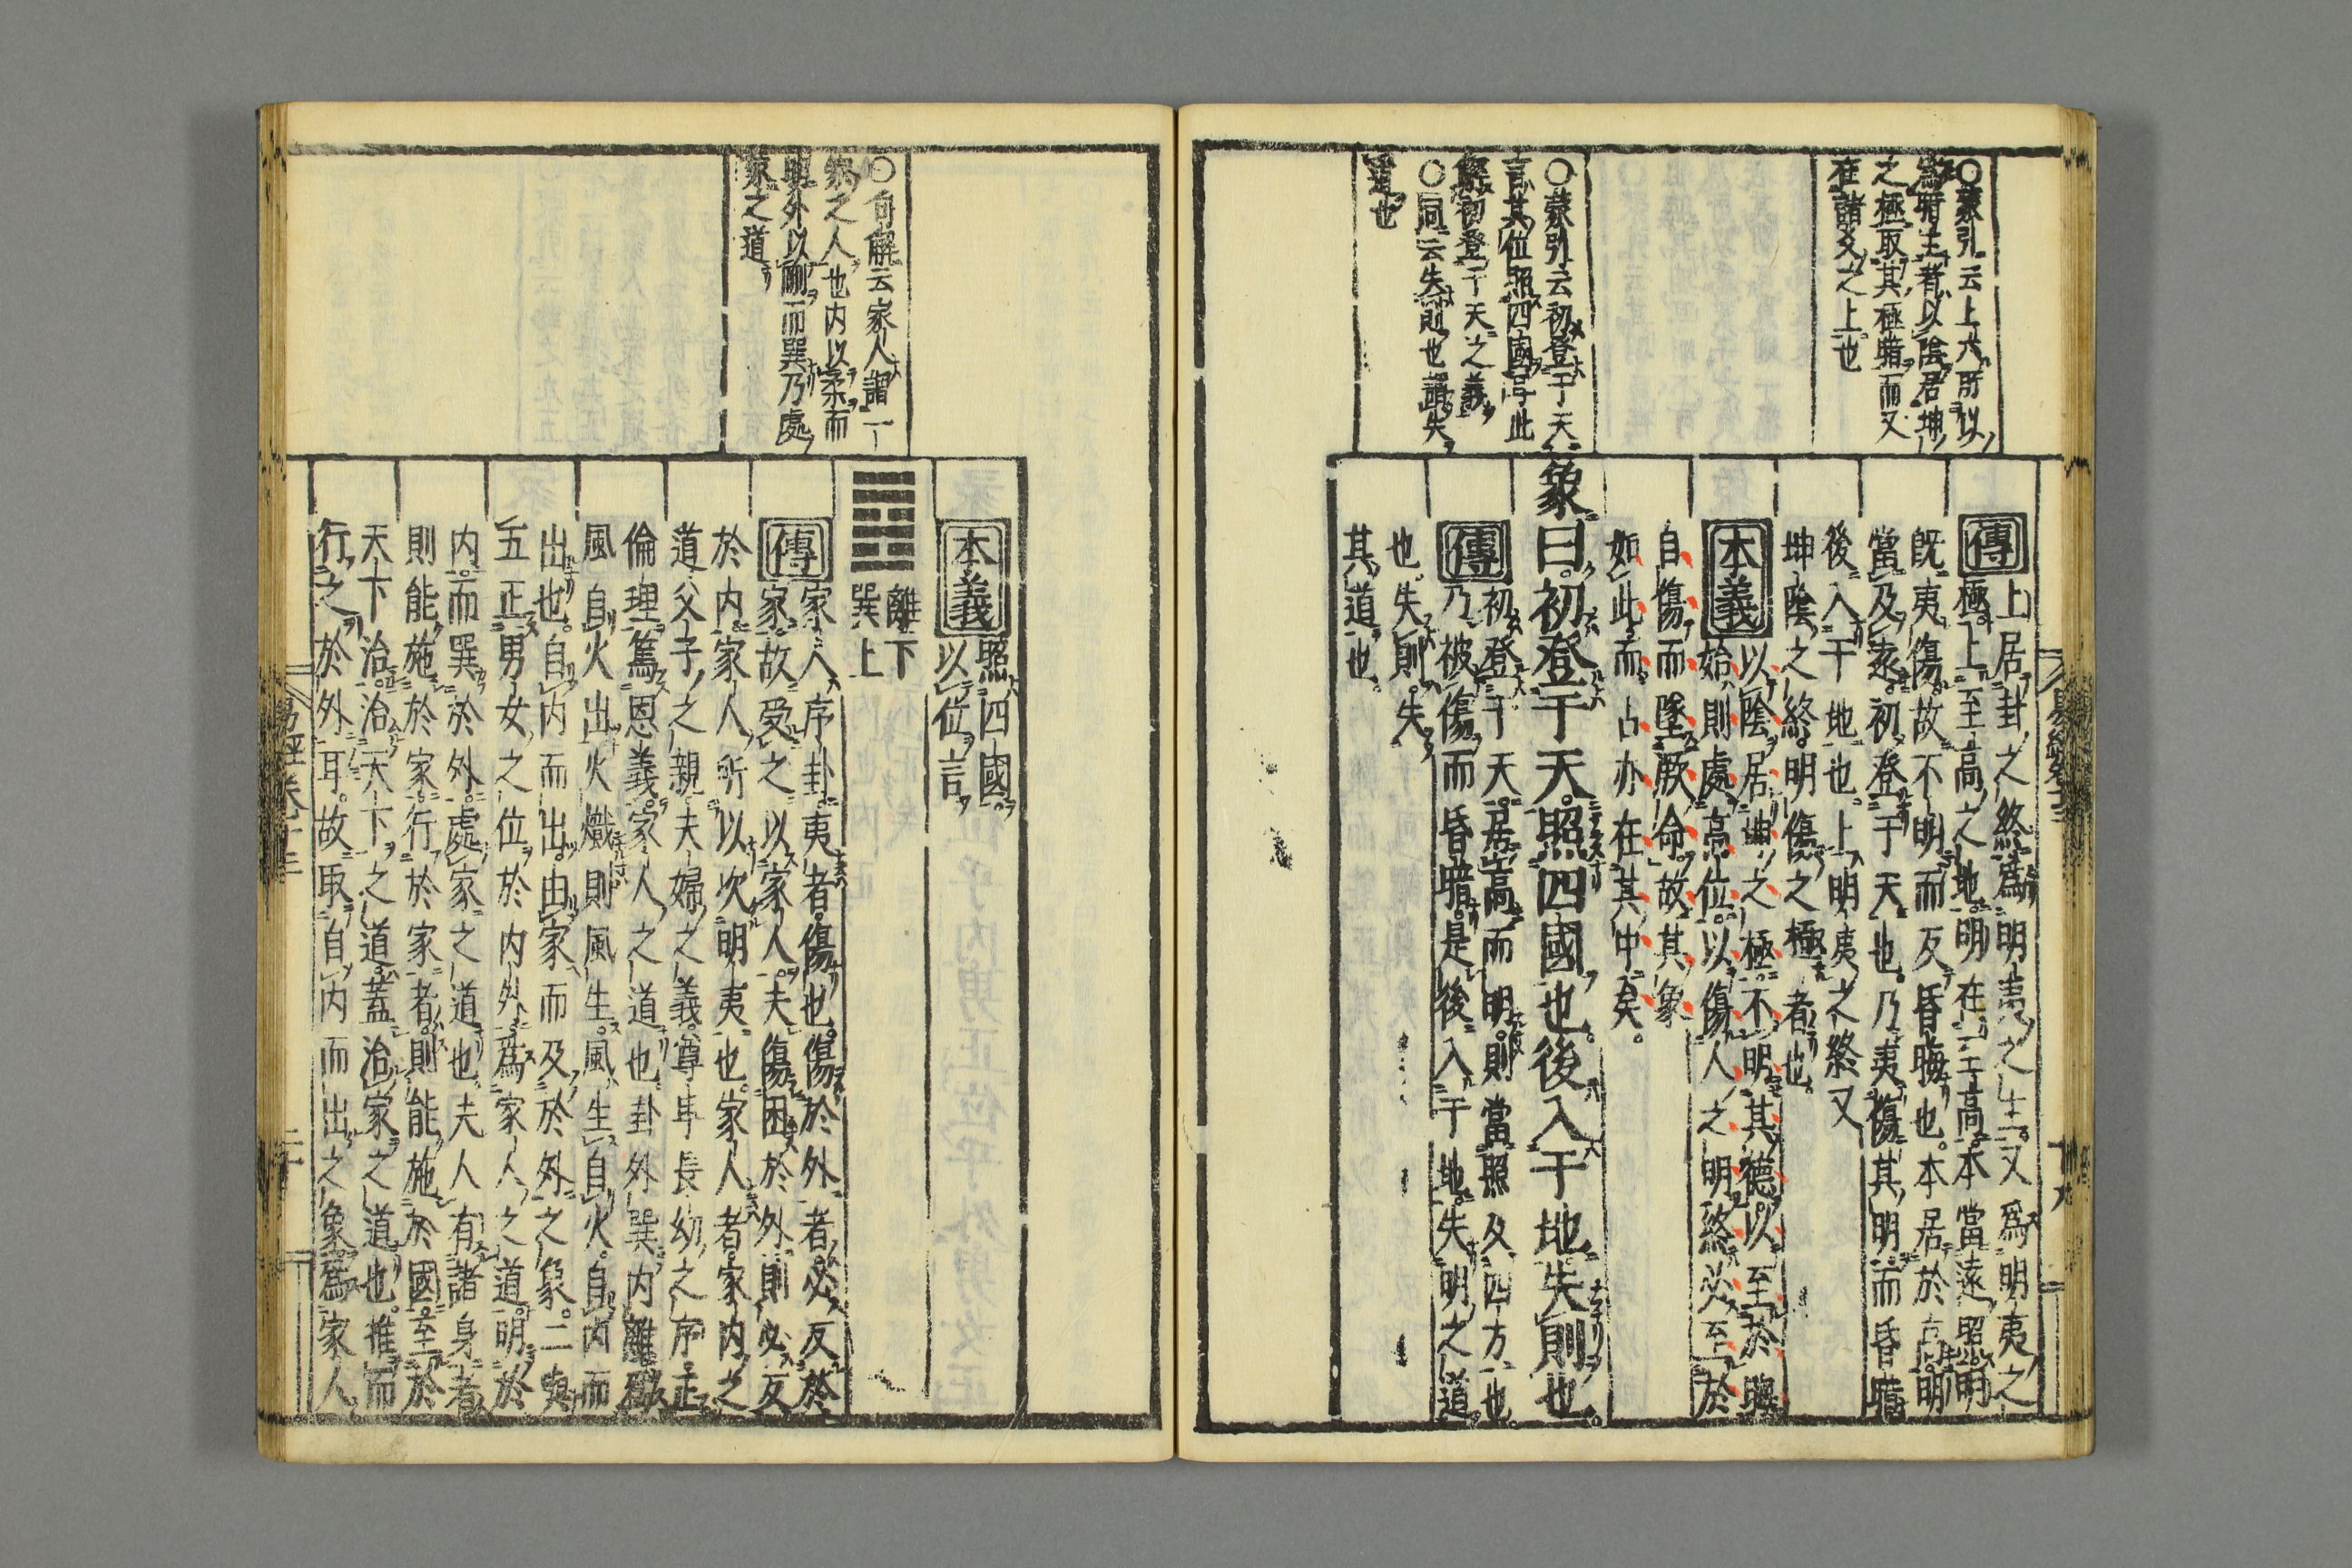 ○蒙引云上六所以
爲暗主者以陰居坤
之極取其極暗而又
在諸爻之上也
○蒙引云初登于天
言其位照四國与此
解初登于天之義
○同云失則也謂失
道也
傳 上居卦之終爲明夷之主又爲明夷之
極上至高之地明在至高本當遠照明
既夷傷故不明而反昏晦也本居於高明
當及遠初登于天也乃夷傷其明而昏暗
後入于地也上明夷之終又
坤陰之終明傷之極者也
本義 以陰居坤之極不明其德以至於晦
始則處高位以傷人之明終必至於
自傷而墜厥命故其象
如此而占亦在其中矣
象曰初登于天照四國也後入于地失則也
傳 初登于天居高而明則當照及四方也
乃被傷而昏暗是後入于地失明之道
也失則失
其道也
易經卷十三
十九
○句解云家人謂一
家之人也内以柔而
明外以剛而巽乃處
家之道
本義 照四國
以位言
䷤ 離下
巽上
傳 家人序卦夷者傷也傷於外者必反於
家故受之以家人夫傷困於外則必反
於内家人所以次明夷也家人者家内之
道父子之親夫婦之義尊卑長幼之序正
倫理篤恩義家人之道也卦外巽内離爲
風自火出火熾則風生風生自火自内而
出也自内而出由家而及於外之象二與
五正男女之位於内外爲家人之道明於
内而巽於外處家之道也夫人有諸身者
則能施於家行於家者則能施於國至於
天下治治天下之道蓋治家之道也推而
行之於外耳故取自内而出之象爲家人
易經卷十三
二十